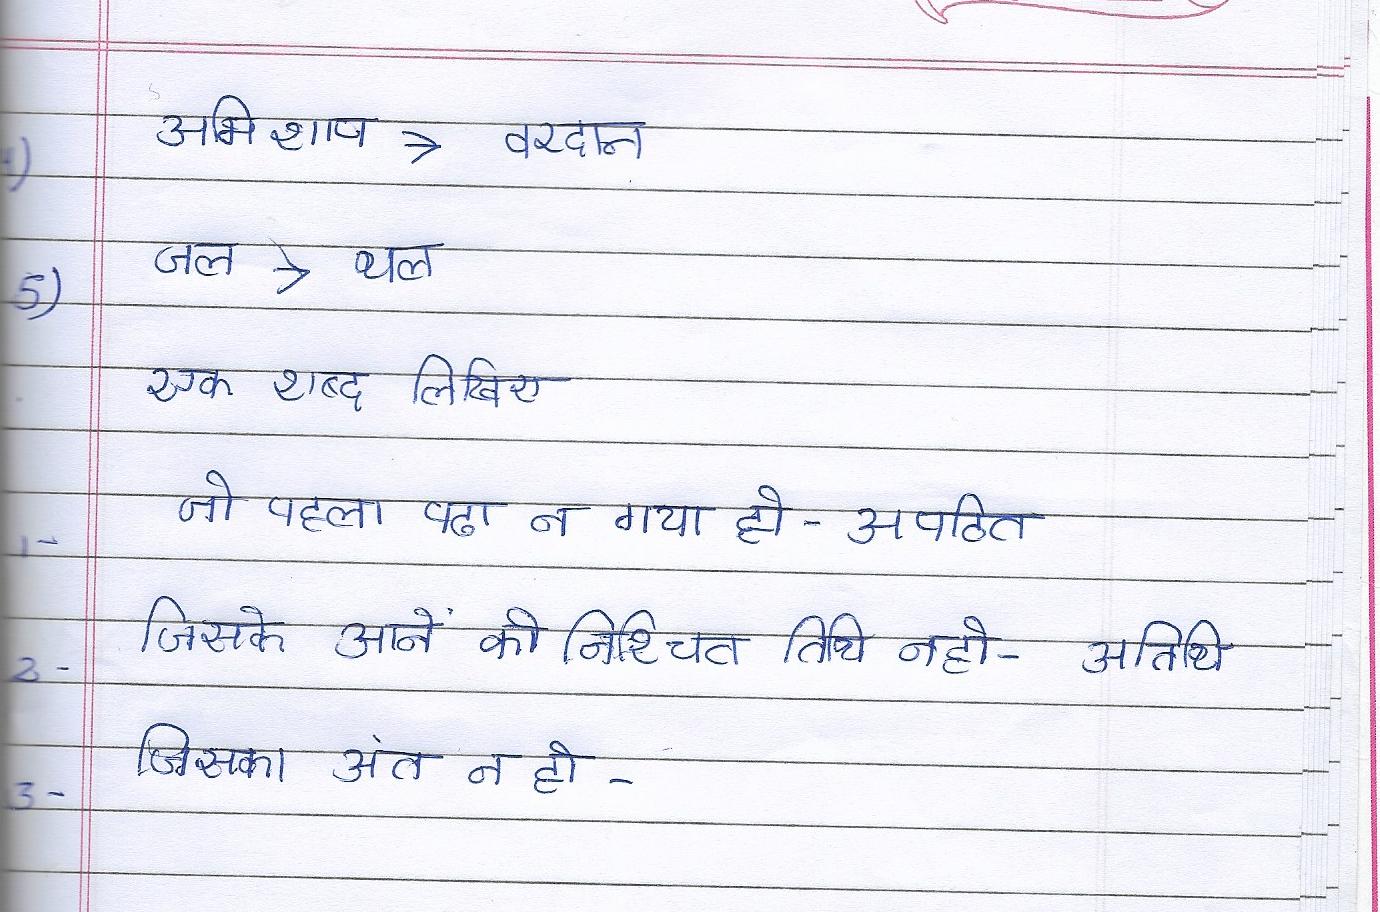 4) अभिशाप → वरदान
5) जल → थल
एक शब्द लिखिए
1- जो पहला पढा न गया हो - अपठित
2- जिसके आनें की निश्चित तिथि नहो - अतिथि
3- जिसका अंत न हो -